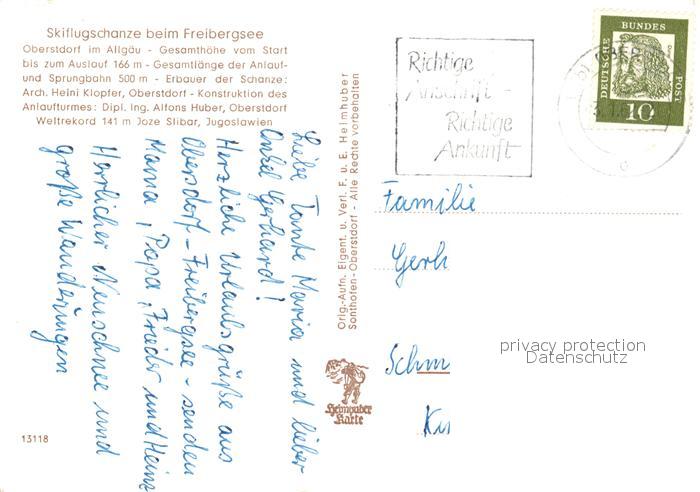 Skiflugschanze beim Freibergsee
Oberstdorf im Allgäu - Gesamthöhe vom Start
bis zum Auslauf 166 m - Gesamtlänge der Anlauf-
und Sprungbahn 500 m - Erbauer der Schanze:
Arch. Heini Klopfer, Oberstdorf - Konstruktion des
Anlaufturmes: Dipl. Ing. Alfons Huber, Oberstdorf
Weltrekord 141 m Joze Slibar, Jugoslawien
Liebe Tante Maria und lieber
Onkel Gerhard!
Herzliche Urlaubsgrüße aus
Oberstdorf - Freibergsee - senden
Mama, Papa, Frieder und Heinz
Herrlicher Neuschnee und
große Wanderungen
13118
Orig.-Aufn. Eigent. u. Verl. F. u. E. Heimhuber
Sonthofen-Oberstdorf - Alle Rechte vorbehalten
Heimhuber
Karte
Richtige
Anschrift -
Richtige
Ankunft
DEUTSCHE BUNDES POST
10
Familie
Gerh
Schm
privacy protection
Datenschutz